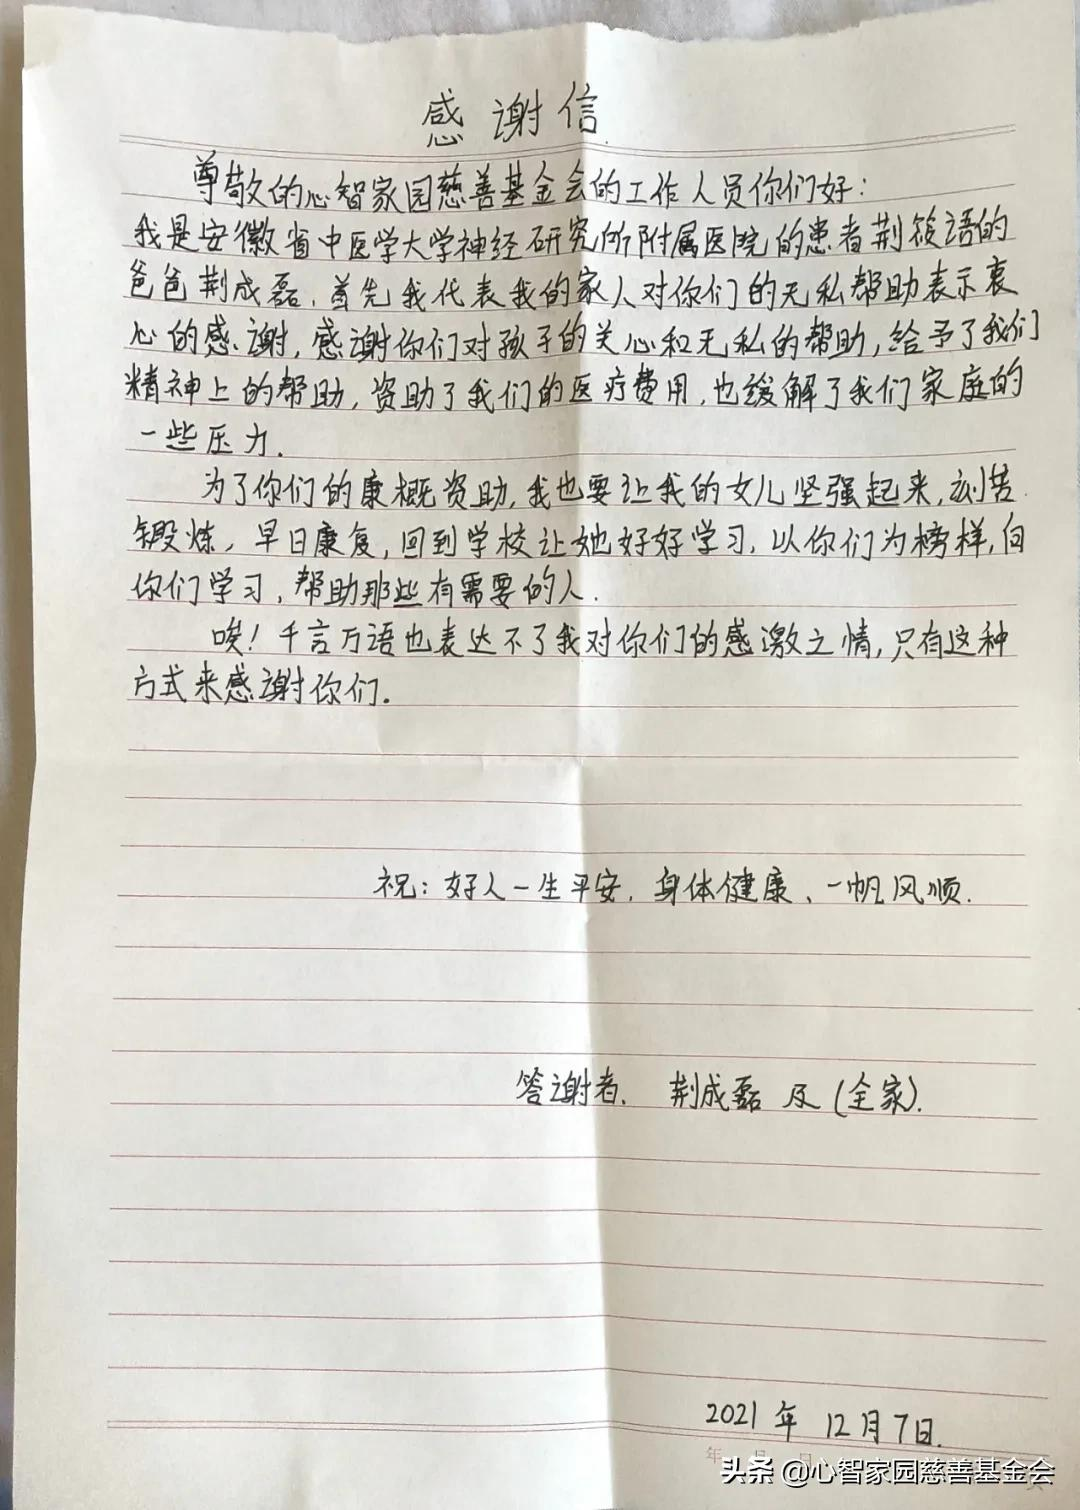 感谢信
尊敬的心智家园慈善基金会的工作人员你们好：
我是安徽省中医学大学神经研究所附属医院的患者荆筱语的
爸爸荆成磊，首先我代表我的家人对你们的无私帮助表示衷
心的感谢，感谢你们对孩子的关心和无私的帮助，给予了我们
精神上的帮助，资助了我们的医疗费用，也缓解了我们家庭的
一些压力.
为了你们的康概资助，我也要让我的女儿坚强起来，刻苦
锻炼，早日康复，回到学校让她好好学习，以你们为榜样，向
你们学习，帮助那些有需要的人.
唉！千言万语也表达不了我对你们的感激之情，只有这种
方式来感谢你们.
祝：好人一生平安．身体健康、一帆风顺.
答谢者. 荆成磊 及（全家）.
2021年 12月7日.
年 月 日
头条 @心智家园慈善基金会